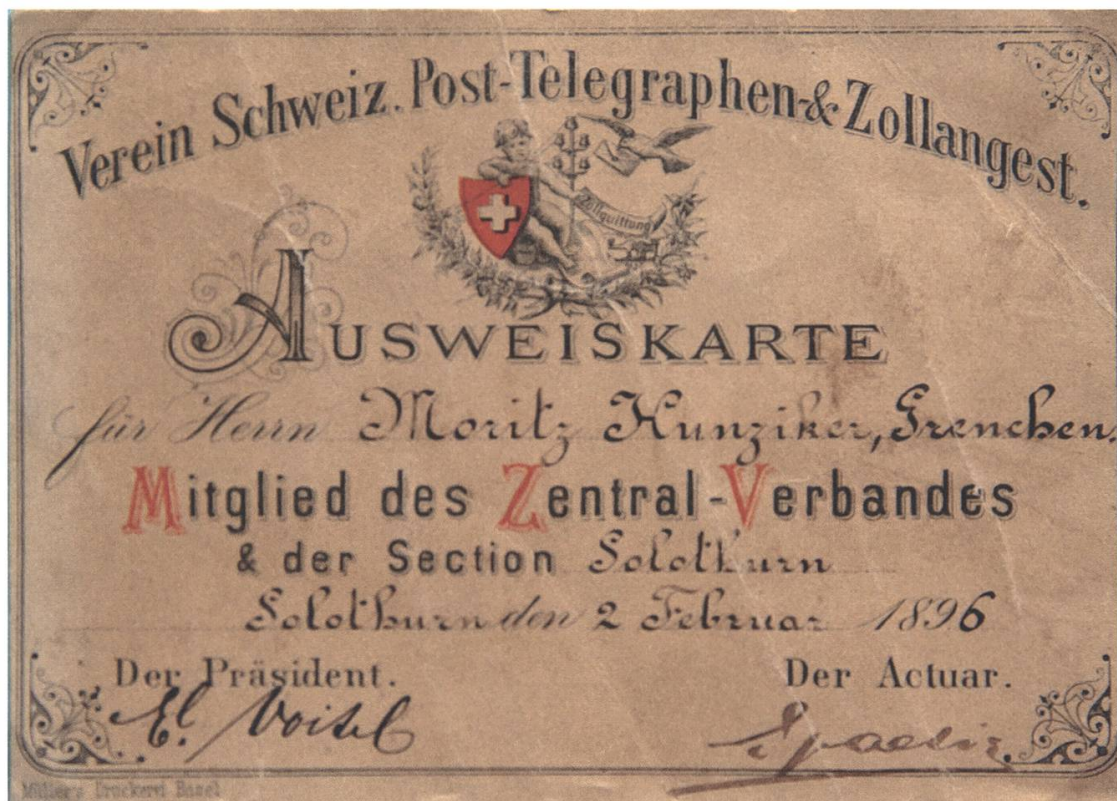 Verein Schweiz. Post-Telegraphen-& Zollangest.
Zollquittung
AUSWEISKARTE
für Herrn Moritz Hunziker, Grenchen.
Mitglied des Zentral-Verbandes
& der Section Solothurn
Solothurn den 2 Februar 1896
Der Präsident. Der Actuar.
Müller's Druckerei Basel